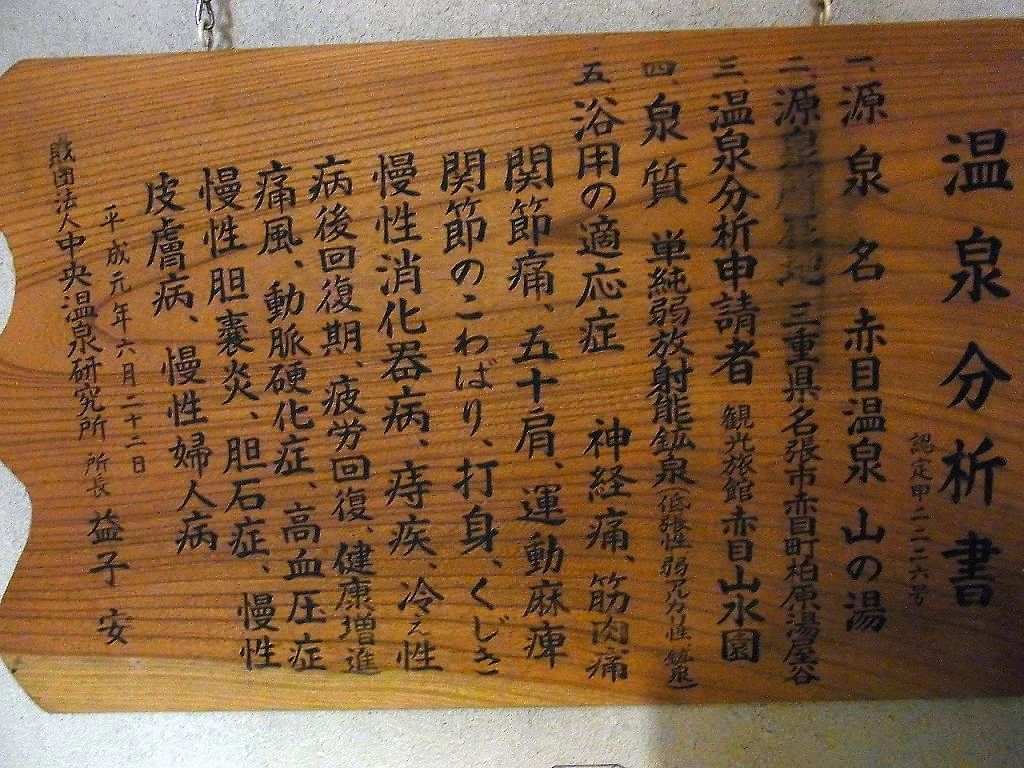 温泉分析書
認定甲二二三六号
一、源泉名 赤目温泉 山の湯
二、源泉所在地 三重県名張市赤目町柏原湯屋谷
三、温泉分析申請者 観光旅館 赤目山水園
四、泉質 単純弱放射能鉱泉(低張性 弱アルカリ性 鉱泉)
五、浴用の適応症 神経痛、筋肉痛
関節痛、五十肩、運動麻痺
関節のこわばり、打身、くじき
慢性消化器病、痔疾、冷え性
病後回復期、疲労回復、健康増進
痛風、動脈硬化症、高血圧症
慢性胆嚢炎、胆石症、慢性
皮膚病、慢性婦人病
平成元年六月二十二日
財団法人中央温泉研究所 所長 益子 安